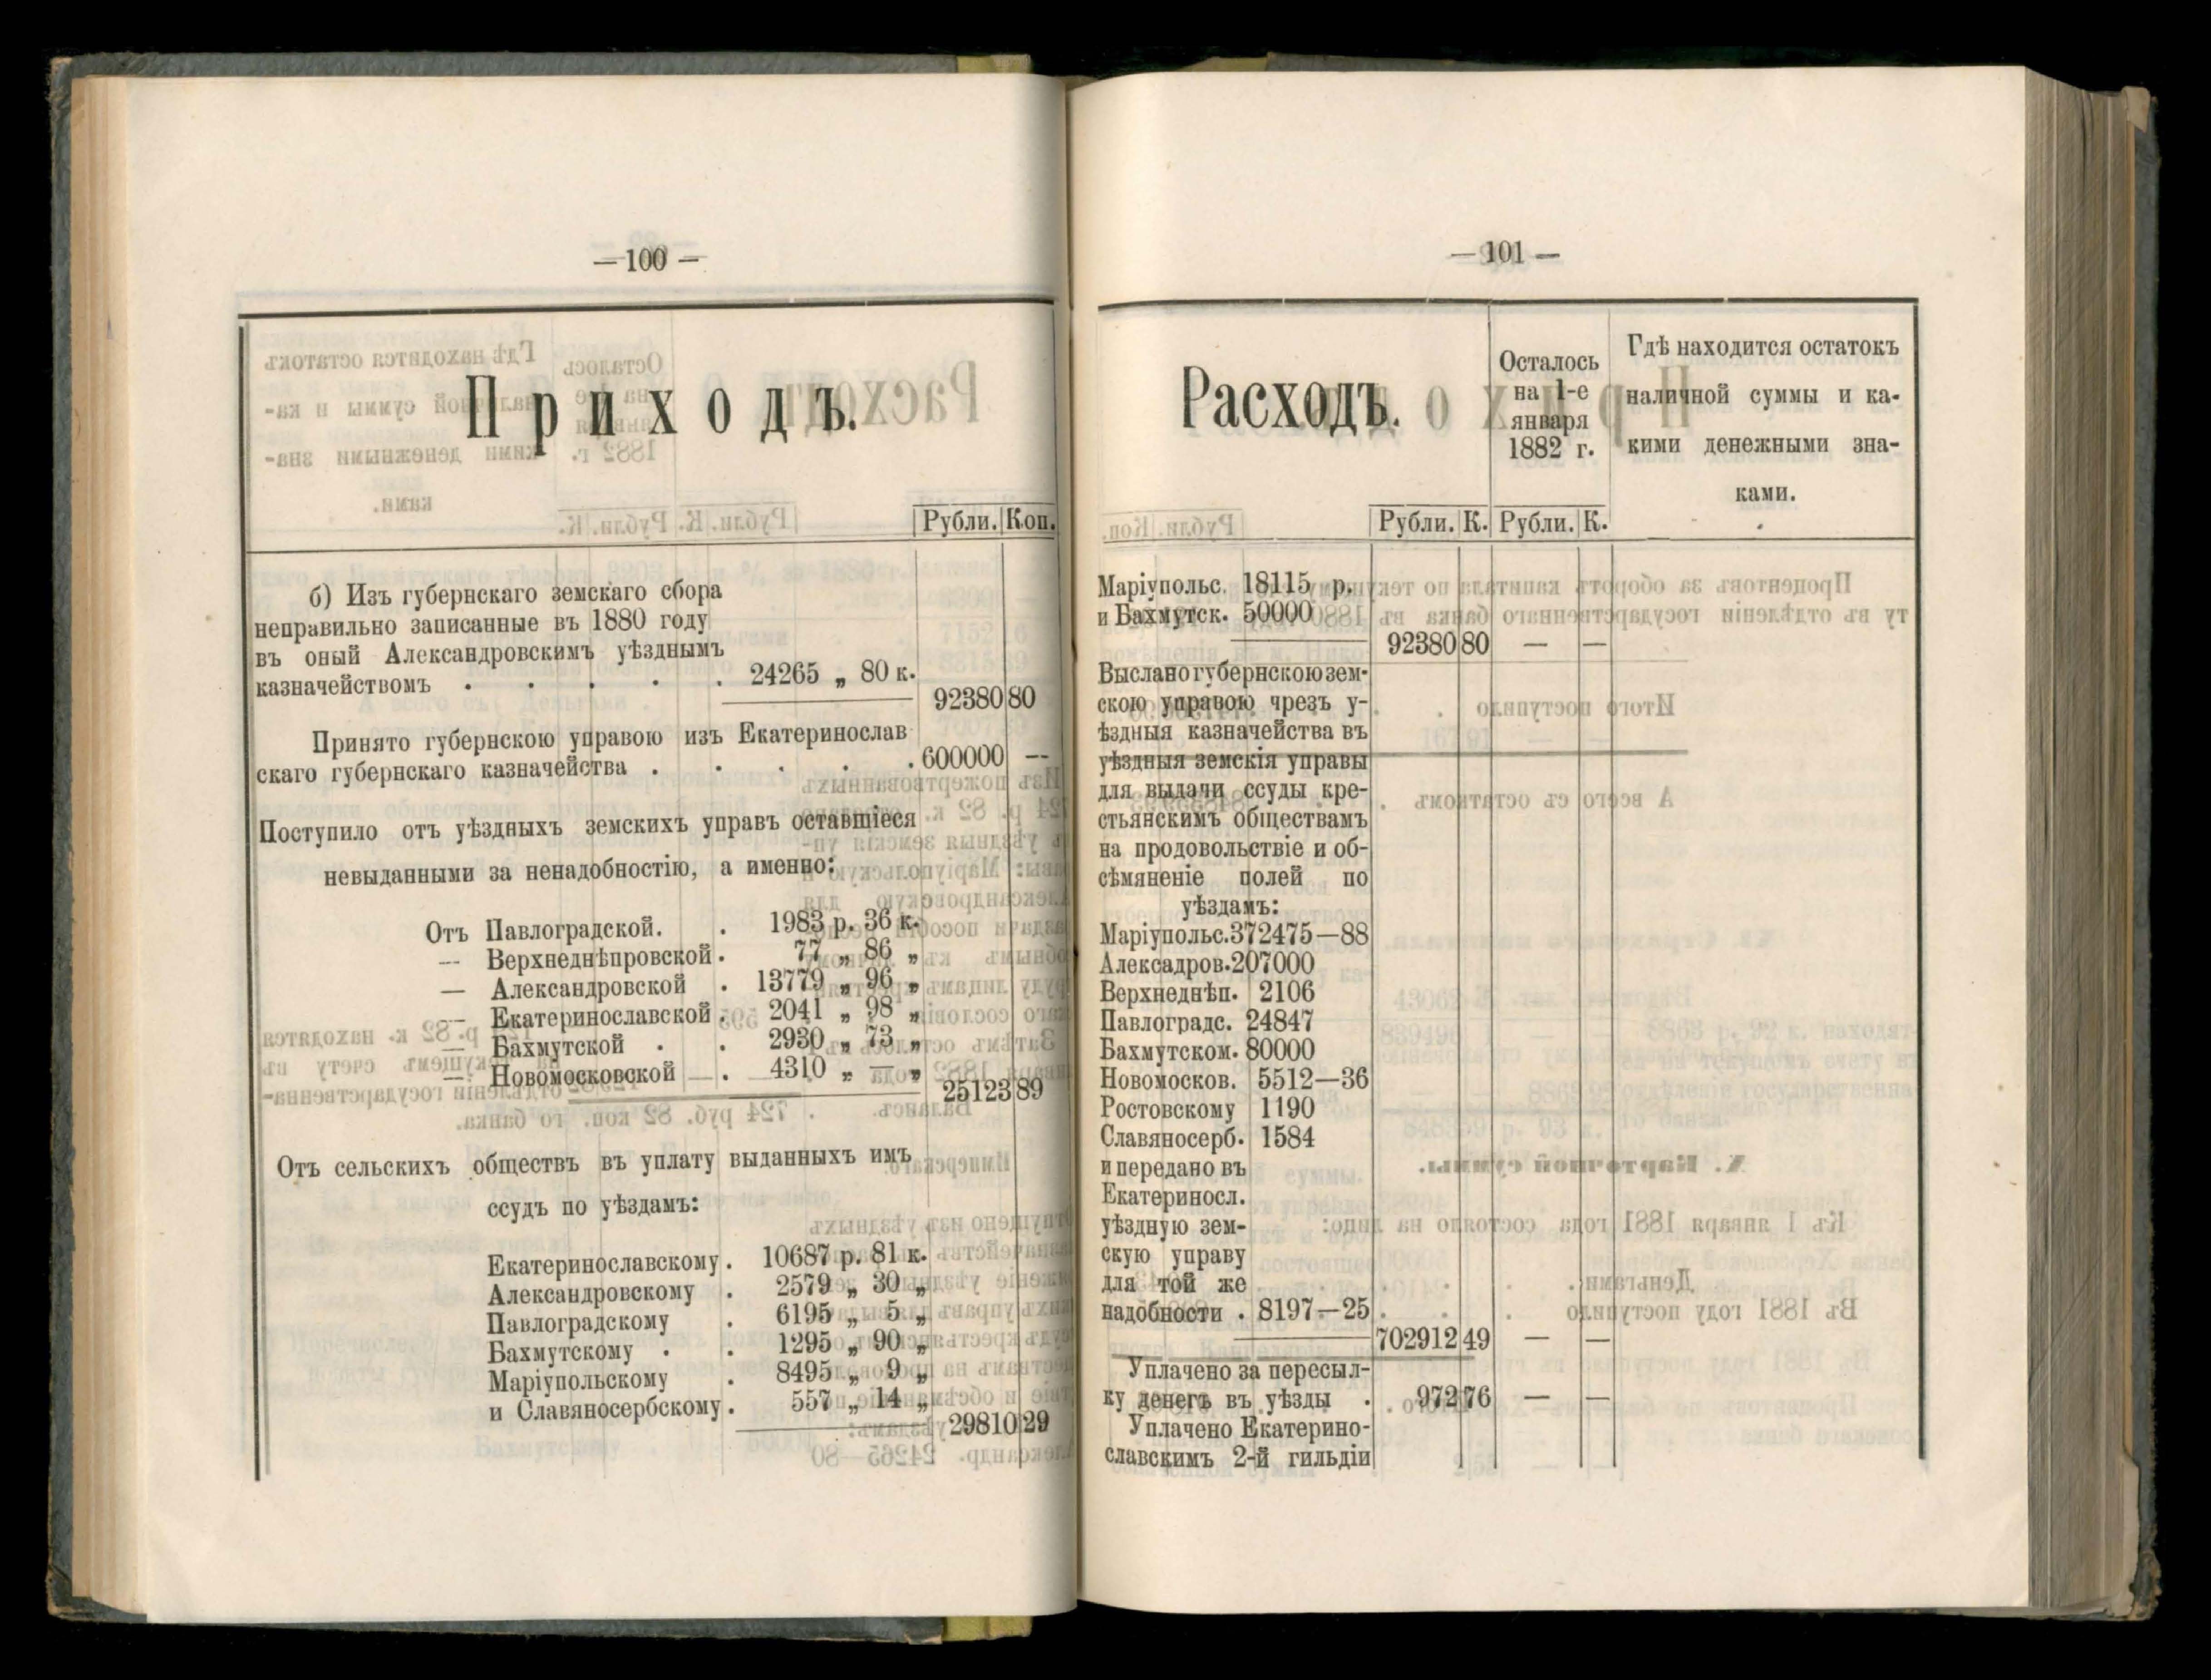 — 100 —
Приходъ.
Рубли. Коп.
б) Изъ губернскаго земскаго сбора
неправильно записанные въ 1880 году
въ оный Александровскимъ уѣзднымъ
казначействомъ . . . . . 24265 „ 80 к.
92380 80
Принято губернскою управою изъ Екатеринослав
скаго губернскаго казначейства . . . . . 600000 —
Поступило отъ уѣздныхъ земскихъ управъ оставшіеся
невыданными за ненадобностію, а именно:
Отъ Павлоградской. . 1983 р. 36 к.
— Верхнеднѣпровской . 77 „ 86 „
— Александровской . 13779 „ 96 „
— Екатеринославской . 2041 „ 98 „
— Бахмутской . . 2930 „ 73 „
— Новомосковской . 4310 „ — „
25123 89
Отъ сельскихъ обществъ въ уплату выданныхъ имъ
ссудъ по уѣздамъ:
Екатеринославскому . 10687 р. 81 к.
Александровскому . 2579 „ 30 „
Павлоградскому . 6195 „ 5 „
Бахмутскому . . 1295 „ 90 „
Маріупольскому . 8495 „ 9 „
и Славяносербскому . 557 „ 14 „
29810 29
— 101 —
Расходъ.
Осталось
на 1-е
января
1882 г.
Гдѣ находится остатокъ
наличной суммы и ка-
кими денежными зна-
ками.
Рубли. К. Рубли. К.
Маріупольс. 18115 р.
и Бахмутск. 50000
92380 80 — —
Выслано губернскою зем-
скою управою чрезъ у-
ѣздныя казначейства въ
уѣздныя земскія управы
для выдачи ссуды кре-
стьянскимъ обществамъ
на продовольствіе и об-
сѣмяненіе полей по
уѣздамъ:
Маріупольс. 372475—88
Алексадров. 207000
Верхнеднѣп. 2106
Павлоградс. 24847
Бахмутском. 80000
Новомосков. 5512—36
Ростовскому 1190
Славяносерб. 1584
и передано въ
Екатериносл.
уѣздную зем-
скую управу
для той же
надобности . 8197—25
702912 49 — —
Уплачено за пересыл-
ку денегъ въ уѣзды . 972 76 — —
Уплачено Екатерино-
славскимъ 2-й гильдіи